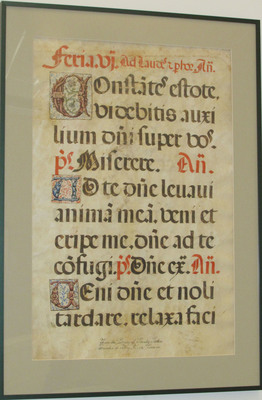 Feria.vj. Ad Laudeˢ ⁊ p hoꝛ. Añ.
Constãte estote.
videbitis auxi
lium dñi super vos.
pˢ. Miserere. Añ.
AD te dñe leuaui
animã meã. veni et
eripe me. dñe ad te
cõfugi. pˢ. Dñe ex. Añ.
UEni dñe et noli
tardare. relaxa faci